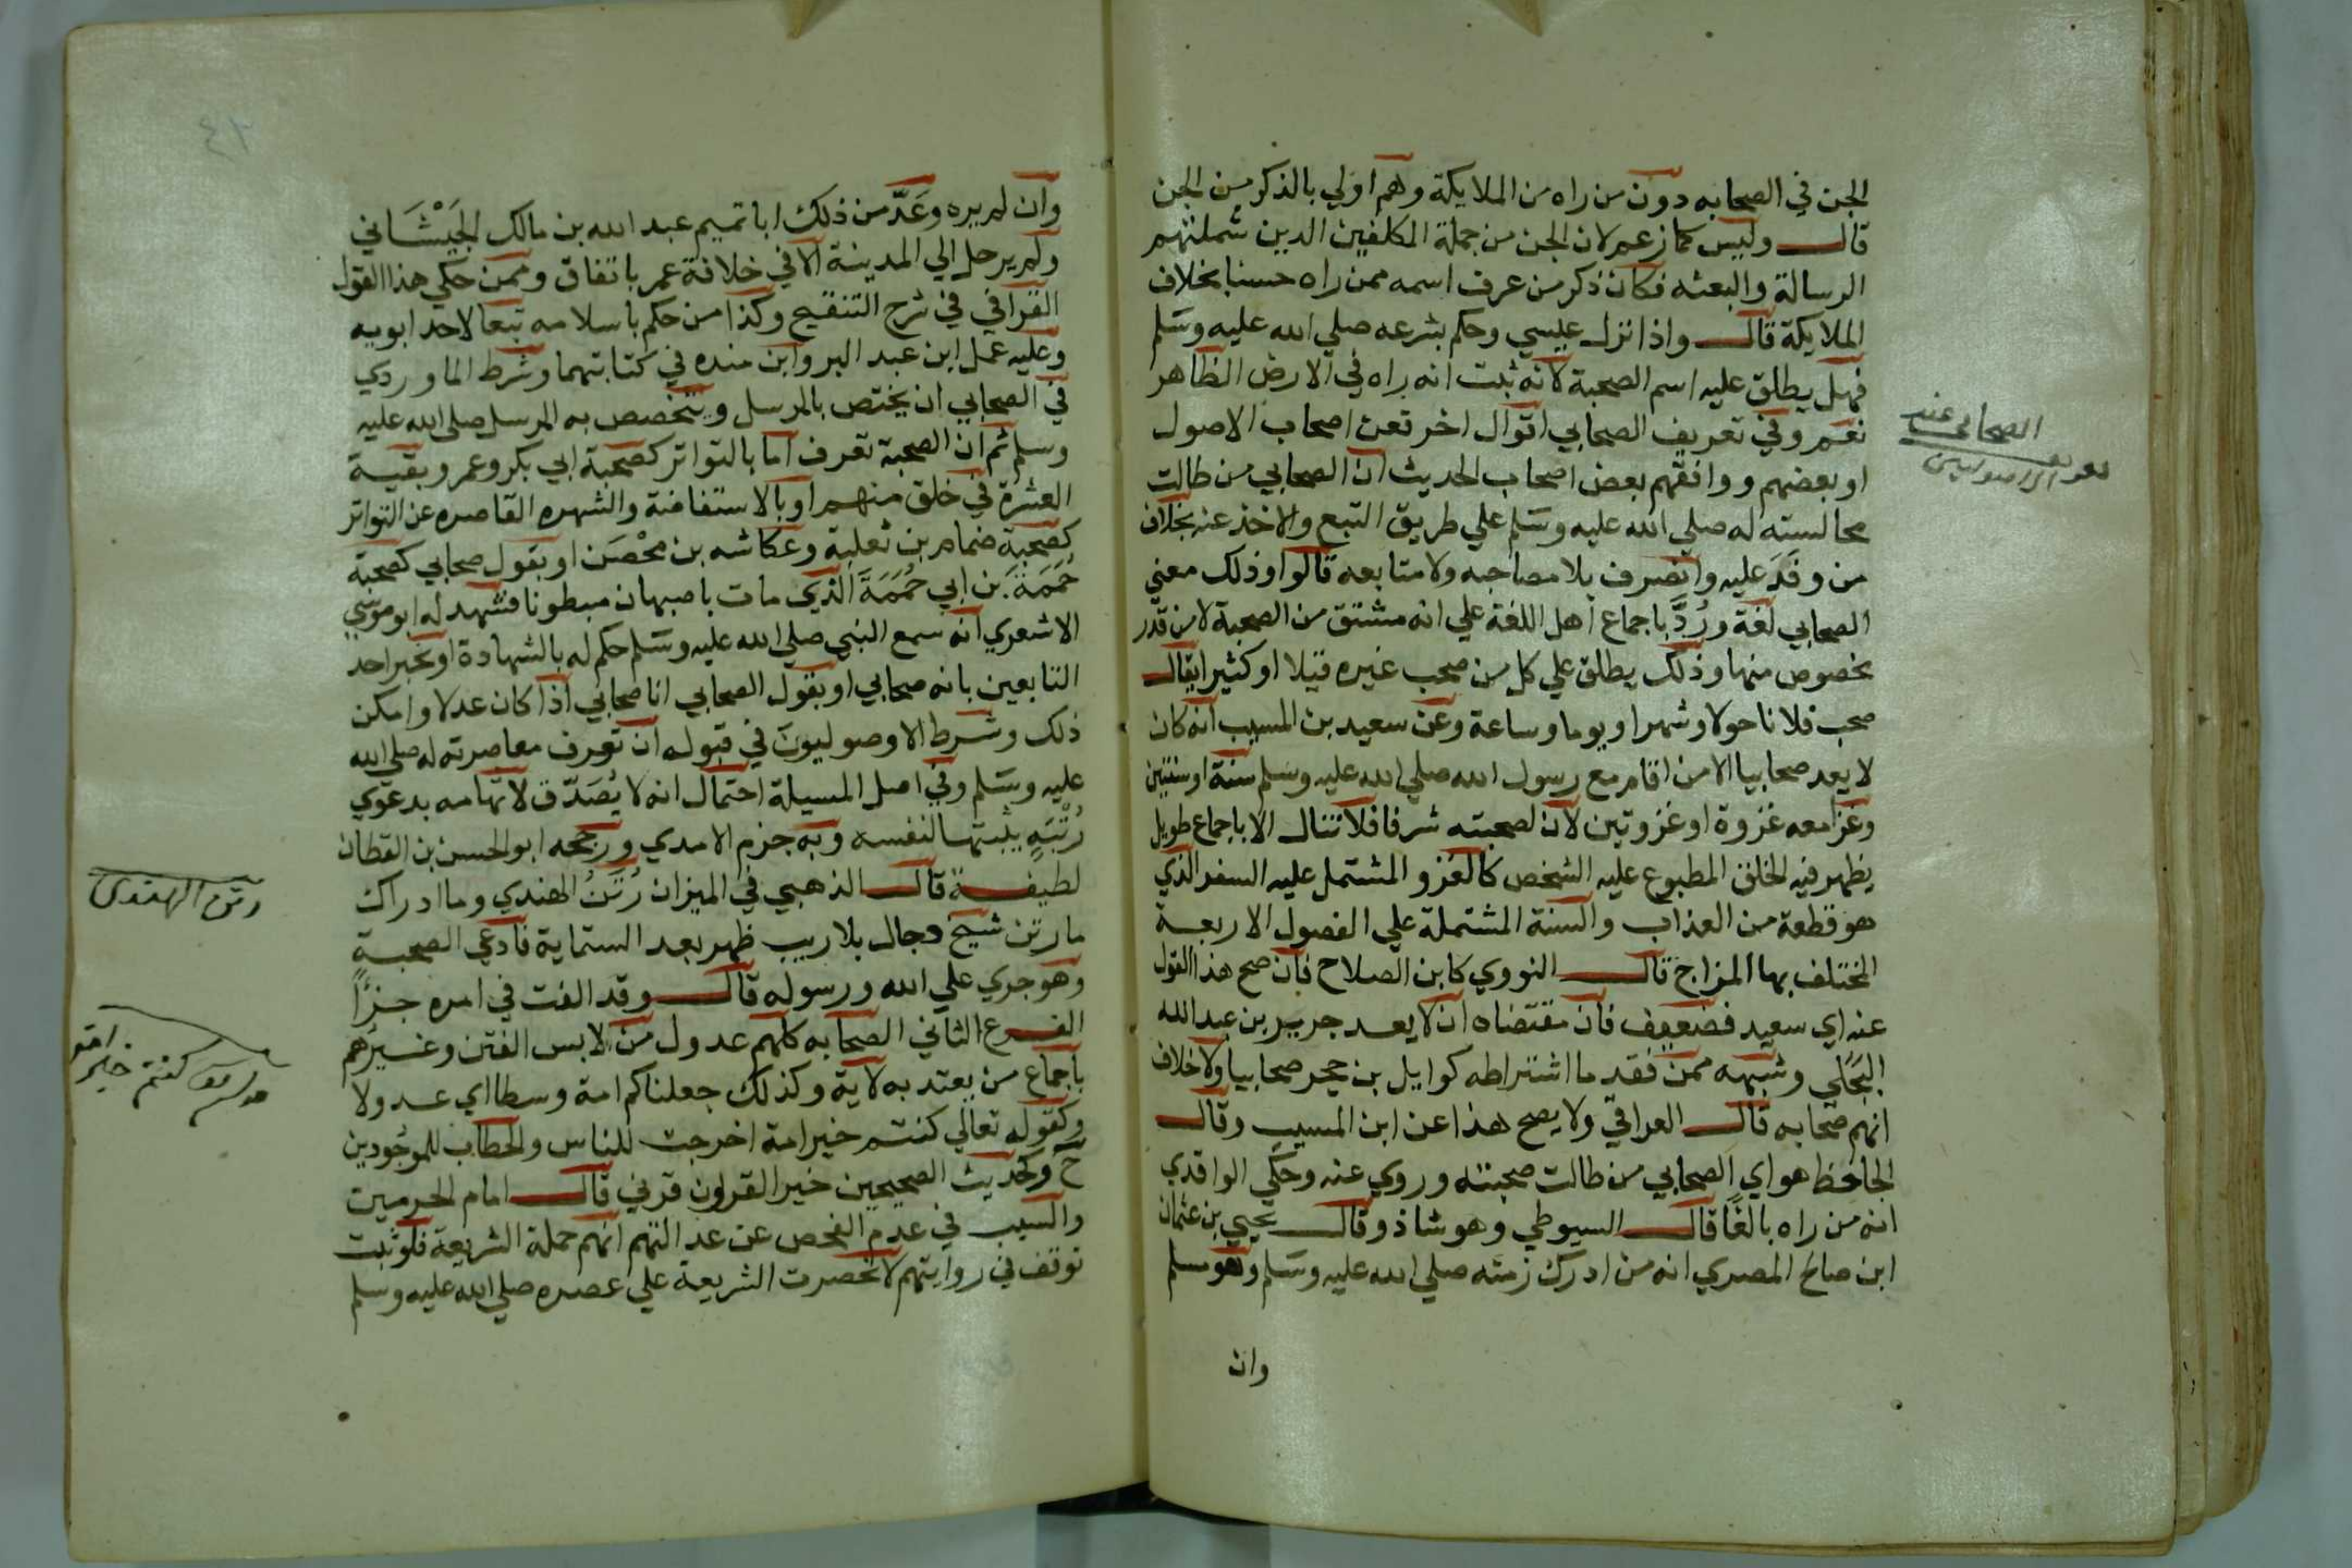 الجن في الصحابه دون من راه من الملايكة وهم اولي بالذكر من الجن
قال وليس كما زعم لان الجن من جملة المكلفين الدين شملتهم
الرسالة والبعثه فكان ذكر من عرف اسمه ممن راه حسنا بخلاف
الملايكة قال واذا نزل عيسي وحكم بشرعه صلي الله عليه وسلم
فهل يطلق عليه اسم الصحبة لانه ثبت انه راه في الارض الظاهر
نعم وفي تعريف الصحابي اقوال اخر تعن اصحاب الاصول
او بعضهم ووافقهم بعض اصحاب الحديث ان الصحابي من طالت
مجالسته له صلي الله عليه وسلم علي طريق التبع والاخذ عنه بخلاف
من وفَدَ عليه وانصرف بلا مصاحبه ولا متابعه قالوا وذلك معني
الصحابي لغة ورُدَّ باجماع اهل اللغة علي انه مشتق من الصحبة لا من قدر
مخصوص منها وذلك يطلق علي كل من صحب غيره قليلا او كثيرا يقال
صحب فلانا حولا وشهرا ويوما وساعة وعن سعيد بن المسيب انه كان
لا يعد صحابيا الا من اقام مع رسول الله صلي الله عليه وسلم سنة او سنتين
وغزا معه غزوة او غزوتين لان لصحبته شرفا فلا تنال الا باجماع طويل
يظهر فيه الخلق المطبوع عليه الشخص كالغزو المشتمل عليه السفر الذي
هو قطعة من العذاب والسنة المشتملة علي الفصول الاربعة
المختلف بها المزاج قال النووي كابن الصلاح فان صح هذا القول
عنه اي سعيد فضعيف فان مقتضاه ان لا يعد جرير بن عبد الله
البَجَلي وشبهه ممن فقد ما اشتراطه كوايل بن حجر صحابيا ولا خلاف
انهم صحابه قال العراقي ولا يصح هذا عن ابن المسيب وقال
الجاحظ هو اي الصحابي من طالت صحبته وروي عنه وحكي الواقدي
انه من راه بالغًا قال السيوطي وهو شاذ وقال يحيي بن عثمان
ابن صالح المصري انه من ادرك زمنه صلي الله عليه وسلم وهو مسلم
وان
الصحابي عند
تعريف الاصوليين
٤٣
وان لم يره وعَدَّ من ذلك ابا تميم عبد الله بن مالك الجَيْشَاني
ولم يرحل الي المدينة الا في خلافة عمر باتفاق وممن حكي هذا القول
القرافي في شرح التنقيح وكذا من حكم باسلامه تبعا لاحد ابويه
وعليه عمل ابن عبد البر وابن منده في كتابتهما وشرط الماوردي
في الصحابي ان يختص بالمرسل ويتخصص به المرسل صلي الله عليه
وسلم ثم ان الصحبة تعرف اما بالتواتر كصحبة ابي بكر وعمر وبقية
العشرة في خلق منهم او بالاستفاضة والشهره القاصره عن التواتر
كصحبة ضمام بن ثعلبة وعكاشه بن محْصَن او بقول صحابي كصحبة
حُمَمَةَ بن ابي حُمَمَةَ الذي مات باصبهان مبطونا فشهد له ابو موسي
الاشعري انه سمع النبي صلي الله عليه وسلم حكم له بالشهادة او يخبر احد
التابعين بانه صحابي او بقول الصحابي انا صحابي اذا كان عدلا وامكن
ذلك وشرط الاوصوليون في قبوله ان تعرف معاصرته له صلي الله
عليه وسلم وفي اصل المسيلة احتمال انه لا يُصَدّق لاتهامه بدعوي
رُتْبَةٍ يثبتها لنفسه وبه جزم الامدي ورجحه ابو الحسن بن القطان
لطيفة قال الذهبي في الميزان رُتَنُ الهندي وما ادراك
ما رتن شيخ دجال بلا ريب ظهر بعد الستماية فادعي الصحبة
وهو جري علي الله ورسوله قال وقد الفت في امره جزءًا
الفرع الثاني الصحابه كلهم عدول من لابس الفتن وغيرهم
باجماع من يعتد به لاية وكذلك جعلناكم امة وسطا اي عدولا
وكقوله تعالي كنتم خير امة اخرجت للناس والخطاب للموجودين
ح وكحديث الصحيحين خير القرون قرني قال امام الحرمين
والسبب في عدم الفحص عن عدالتهم انهم حملة الشريعة فلو ثبت
توقف في روايتهم لانحصرت الشريعة علي عصره صلي الله عليه وسلم
رتن الهندي
كنتم خير امة